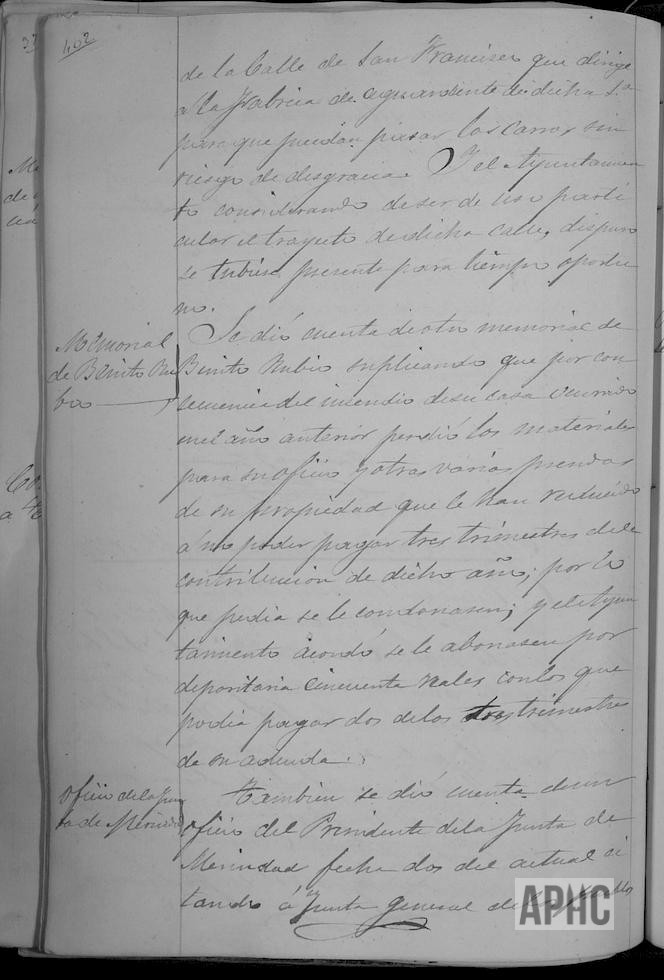 402
de la Calle de San Francisco que dirige
a la Fabrica de aguardiente de dicha S.a
para que puedan pasar los carros sin
riesgo de desgracia. Y el Ayuntamien
to considerando de ser de uso parti
cular el trayecto de dicha calle, dispuso
se tubiese presente para tiempo oportu
no.
Memorial
de Benito Ru
bio
Se dió cuenta de otro memorial de
Benito Rubio suplicando que por con
secuencia del incendio de su casa ocurrido
en el año anterior perdió los materiales
para su oficio y otras varias prendas
de su propiedad que le han reducido
á no poder pagar tres trimestres de la
contribucion de dicho año; por lo
que pedia se le condonasen; y el Ayun
tamiento acordó se le abonasen por
depositaria cincuenta reales con los que
podia pagar dos de los tres trimestres
de su adeudo.
Oficio de la Jun
ta de Merindad
Tambien se dió cuenta de un
oficio del Presidente de la Junta de
Merindad fecha dos del actual ci
tando á Junta general de los Pueblos
APHC